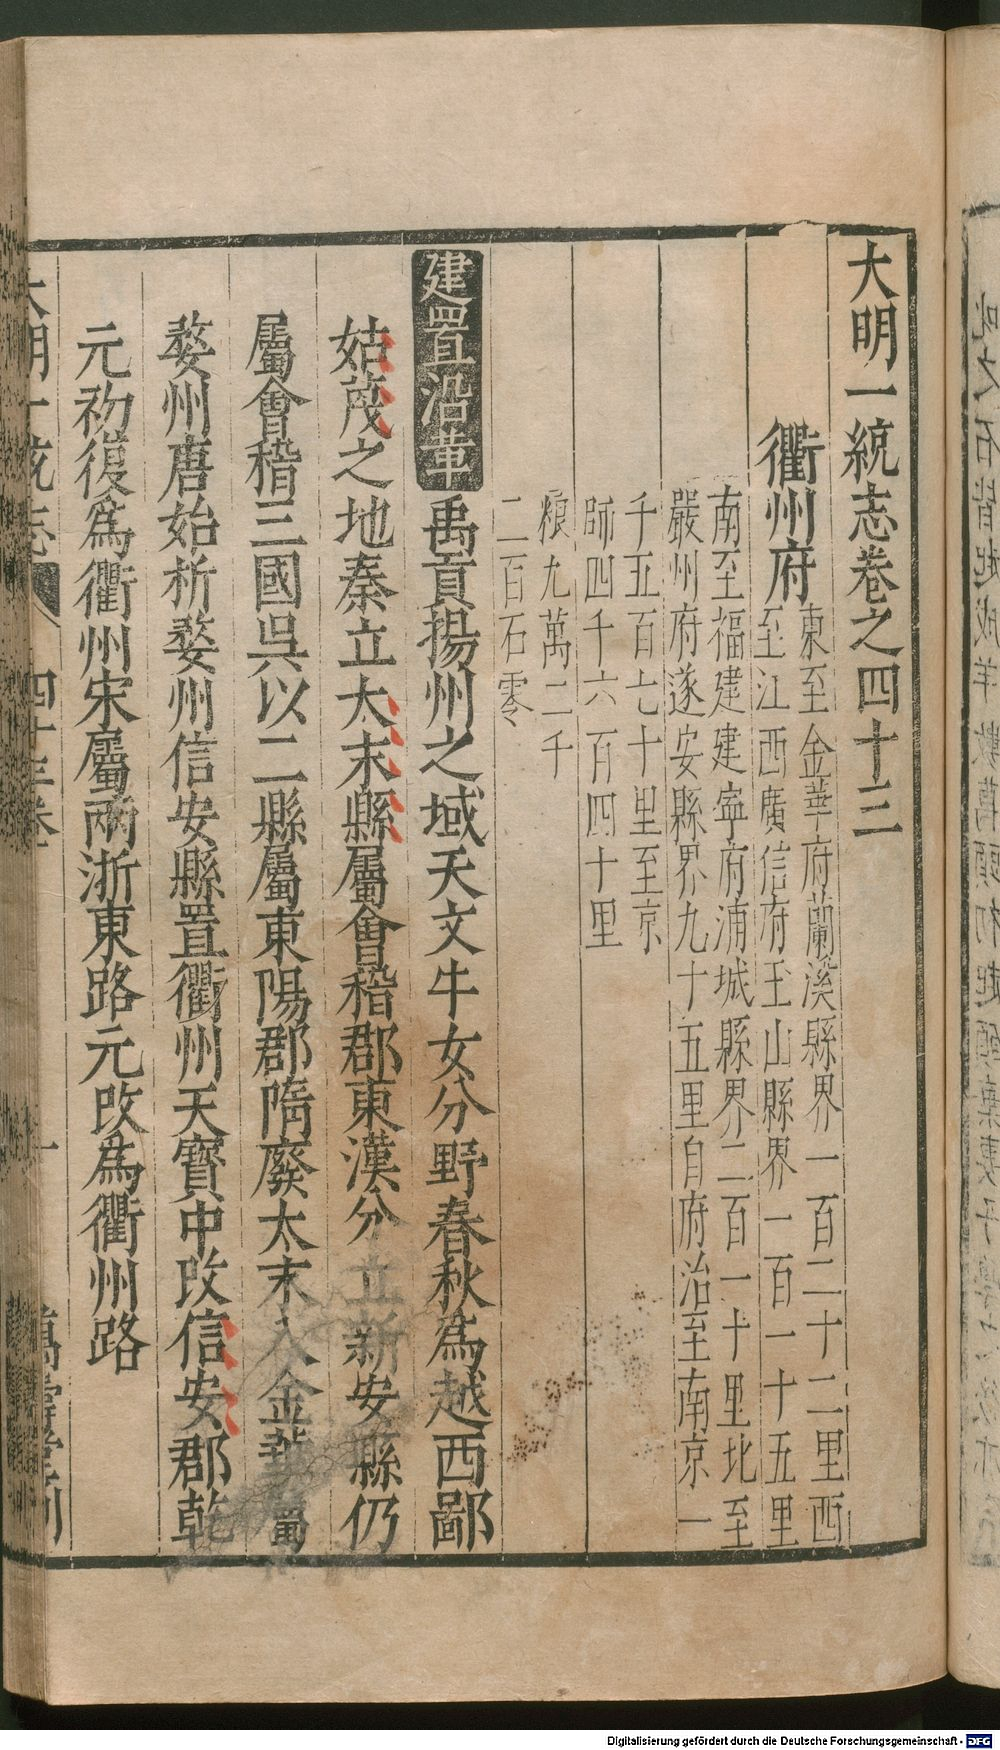 大明一統志卷之四十三
衢州府
東至金華府蘭溪縣界一百二十二里西
至江西廣信府玉山縣界一百一十五里
南至福建建寧府浦城縣界二百一十里北至
嚴州府遂安縣界九十五里自府治至南京一
千五百七十里至京
師四千六百四十里
粮九萬二千
二百石零
建置沿革 禹貢揚州之域天文牛女分野春秋為越西鄙
姑蔑之地秦立太末縣屬會稽郡東漢分立新安縣仍
屬會稽三國吳以二縣屬東陽郡隋廢太末入金華屬
婺州唐始析婺州信安縣置衢州天寶中改信安郡乾
元初復為衢州宋屬兩浙東路元改為衢州路
大明一統志 四十三卷 一 萬壽堂刊
Digitalisierung gefördert durch die Deutsche Forschungsgemeinschaft - DFG